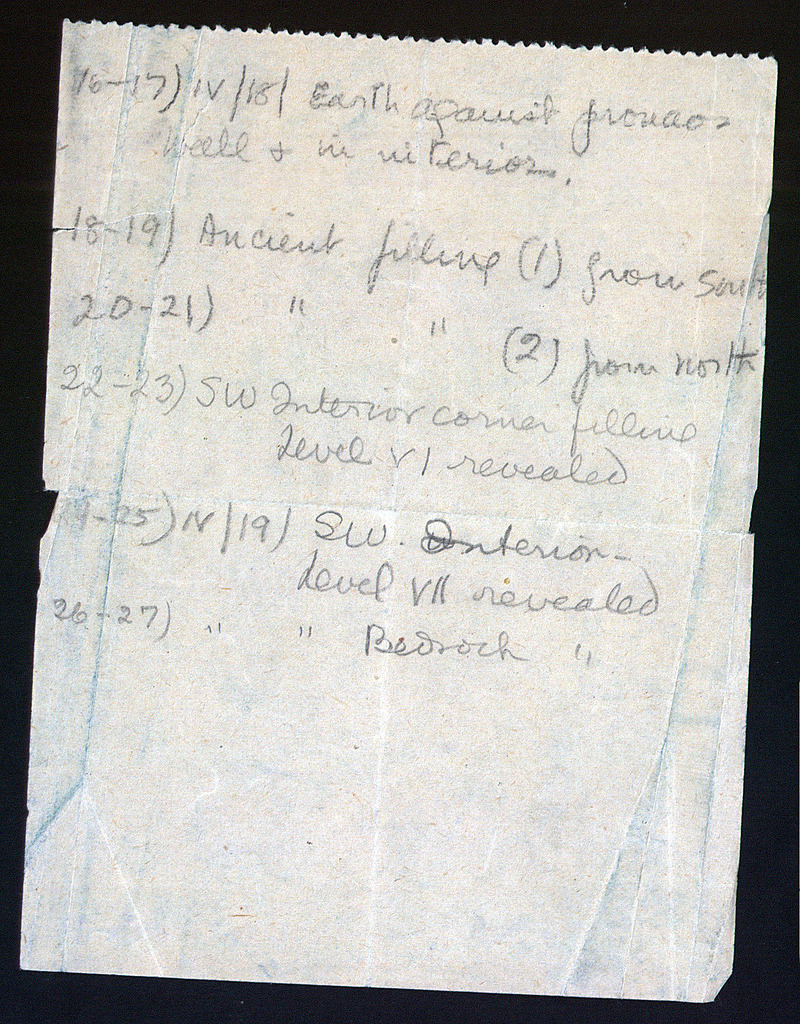 16-17) IV/18/ Earth against pronaos
wall + in interior.
18-19) Ancient filling (1) from South
20-21) " " (2) from north
22-23) SW Interior corner filling
Level VI revealed
-25) IV/19) SW. Interior-
Level VII revealed
26-27) " " Bedrock "